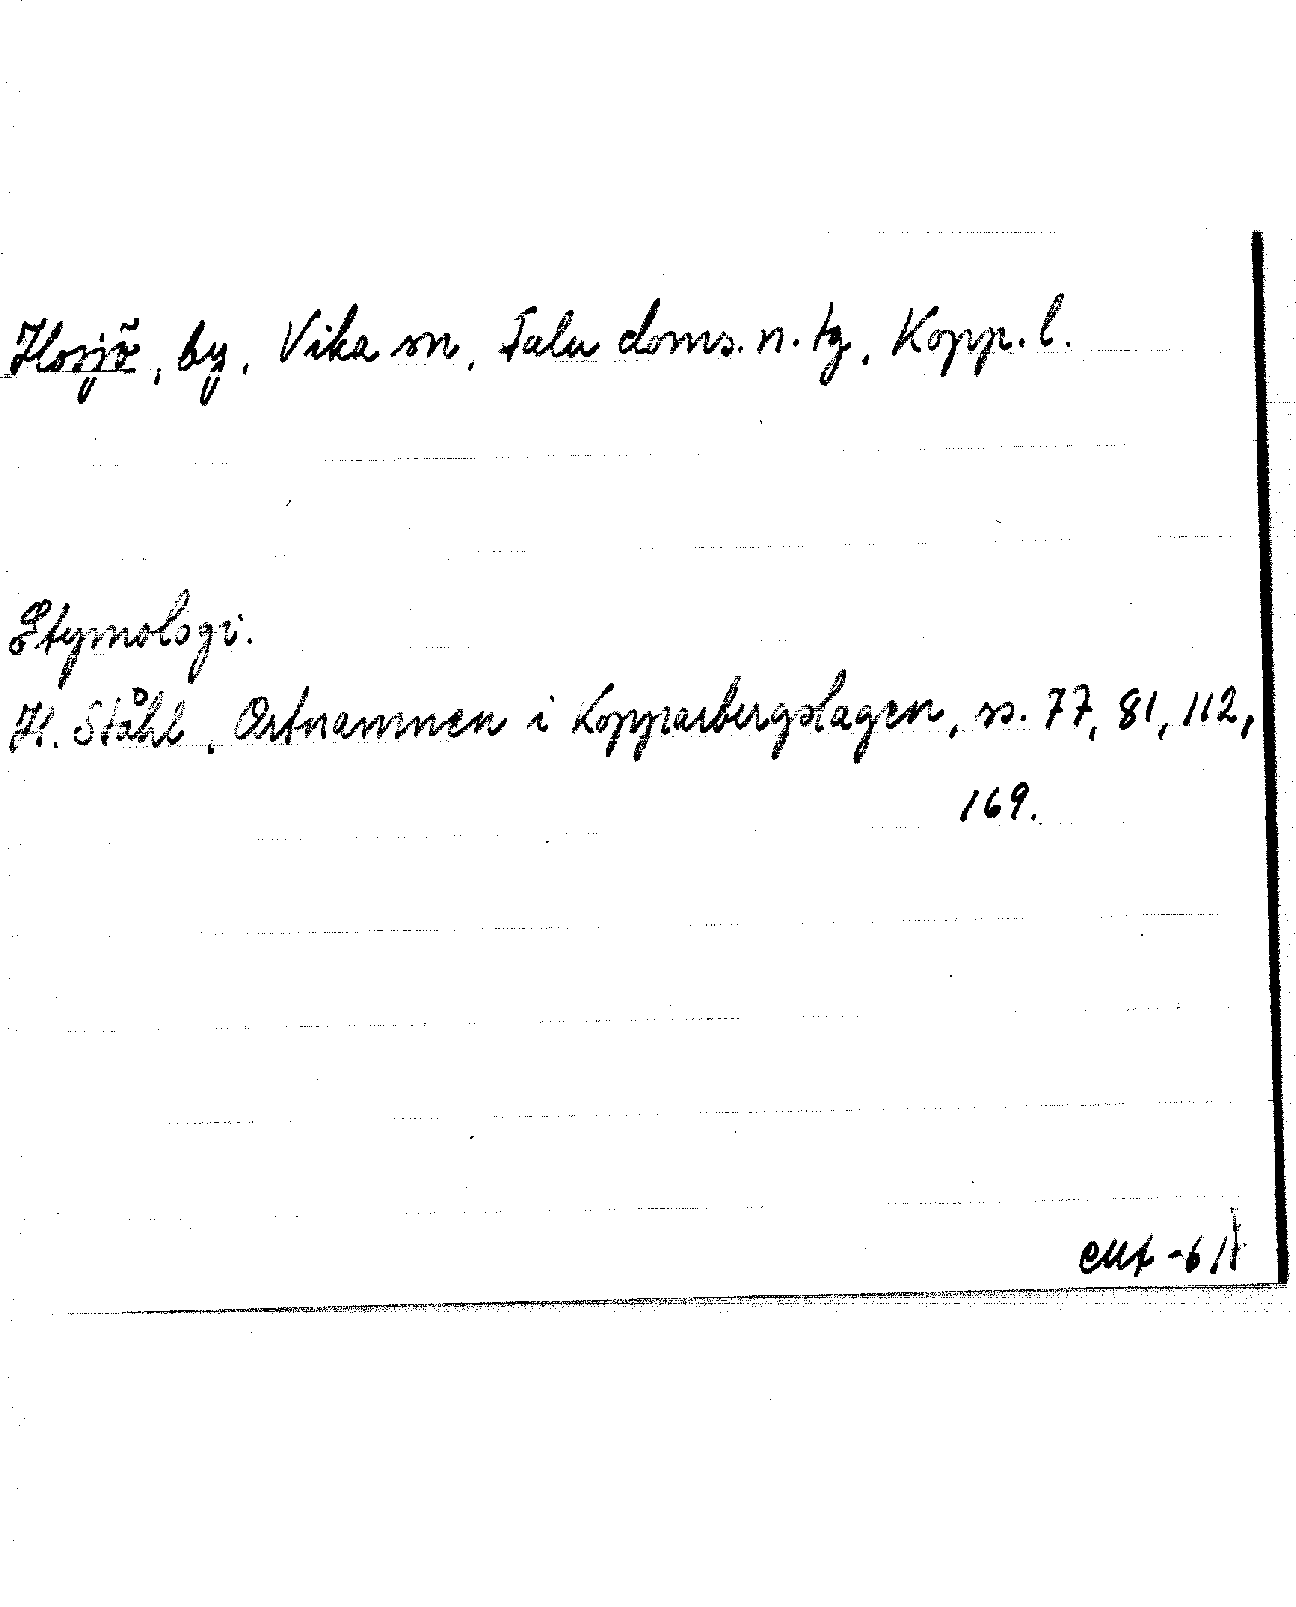 Hosjö, by, Vika sn, Falu doms. n. tg, Kopp. l.
Etymologi.
H. Ståhl, Ortnamnen i Kopparbergslagen, ss. 77, 81, 112,
169.